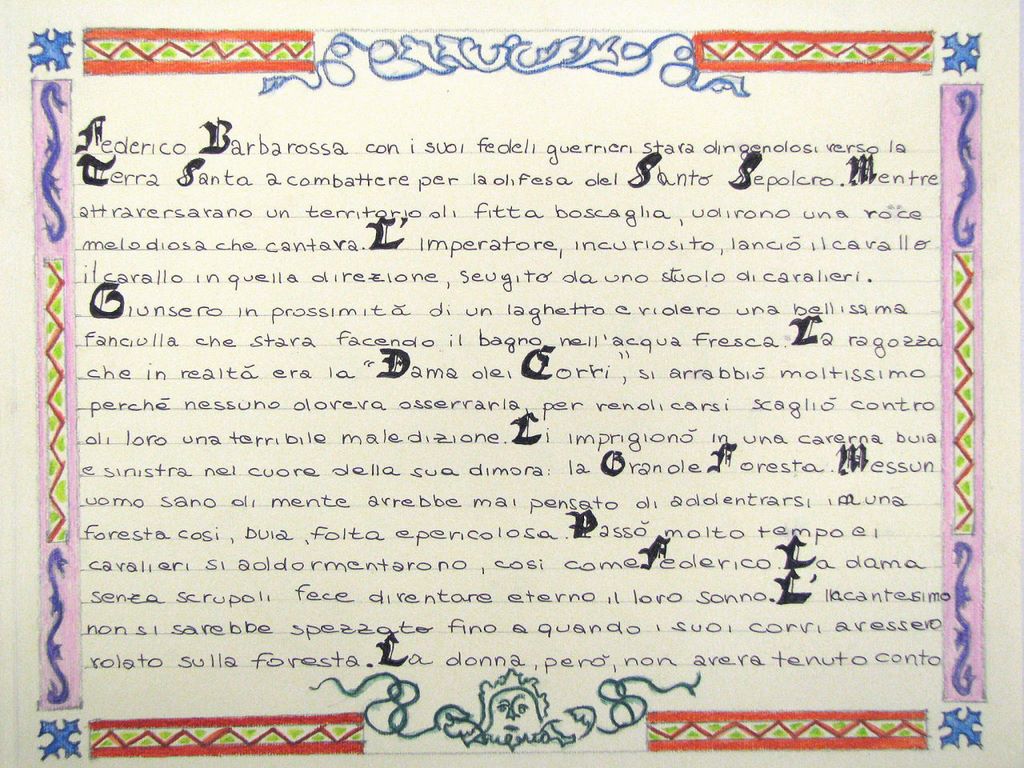 Federico Barbarossa con i suoi fedeli guerrieri stava dirigendosi verso la
Terra Santa a combattere per la difesa del Santo Sepolcro. Mentre
attraversavano un territorio di fitta boscaglia, udirono una voce
melodiosa che cantava. L' imperatore, incuriosito, lanciò il cavallo
il cavallo in quella direzione, seugito da uno stuolo di cavalieri.
Giunsero in prossimità di un laghetto e videro una bellissima
fanciulla che stava facendo il bagno nell'acqua fresca. La ragozza
che in realtà era la "Dama dei Corvi", si arrabbiò moltissimo
perché nessuno doveva osservarla, per vendicarsi scagliò contro
di loro una terribile maledizione. Li imprigionò in una caverna buia
e sinistra nel cuore della sua dimora: la Grande Foresta. Messun
uomo sano di mente avrebbe mai pensato di addentrarsi in una
foresta cosi, buia, folta e pericolosa. Passò molto tempo e i
cavalieri si addormentarono, cosi come Federico. La dama
senza scrupoli fece diventare eterno il loro sonno. L' incantesimo
non si sarebbe spezzato fino a quando i suoi corvi avessero
volato sulla foresta. La donna, però, non aveva tenuto conto